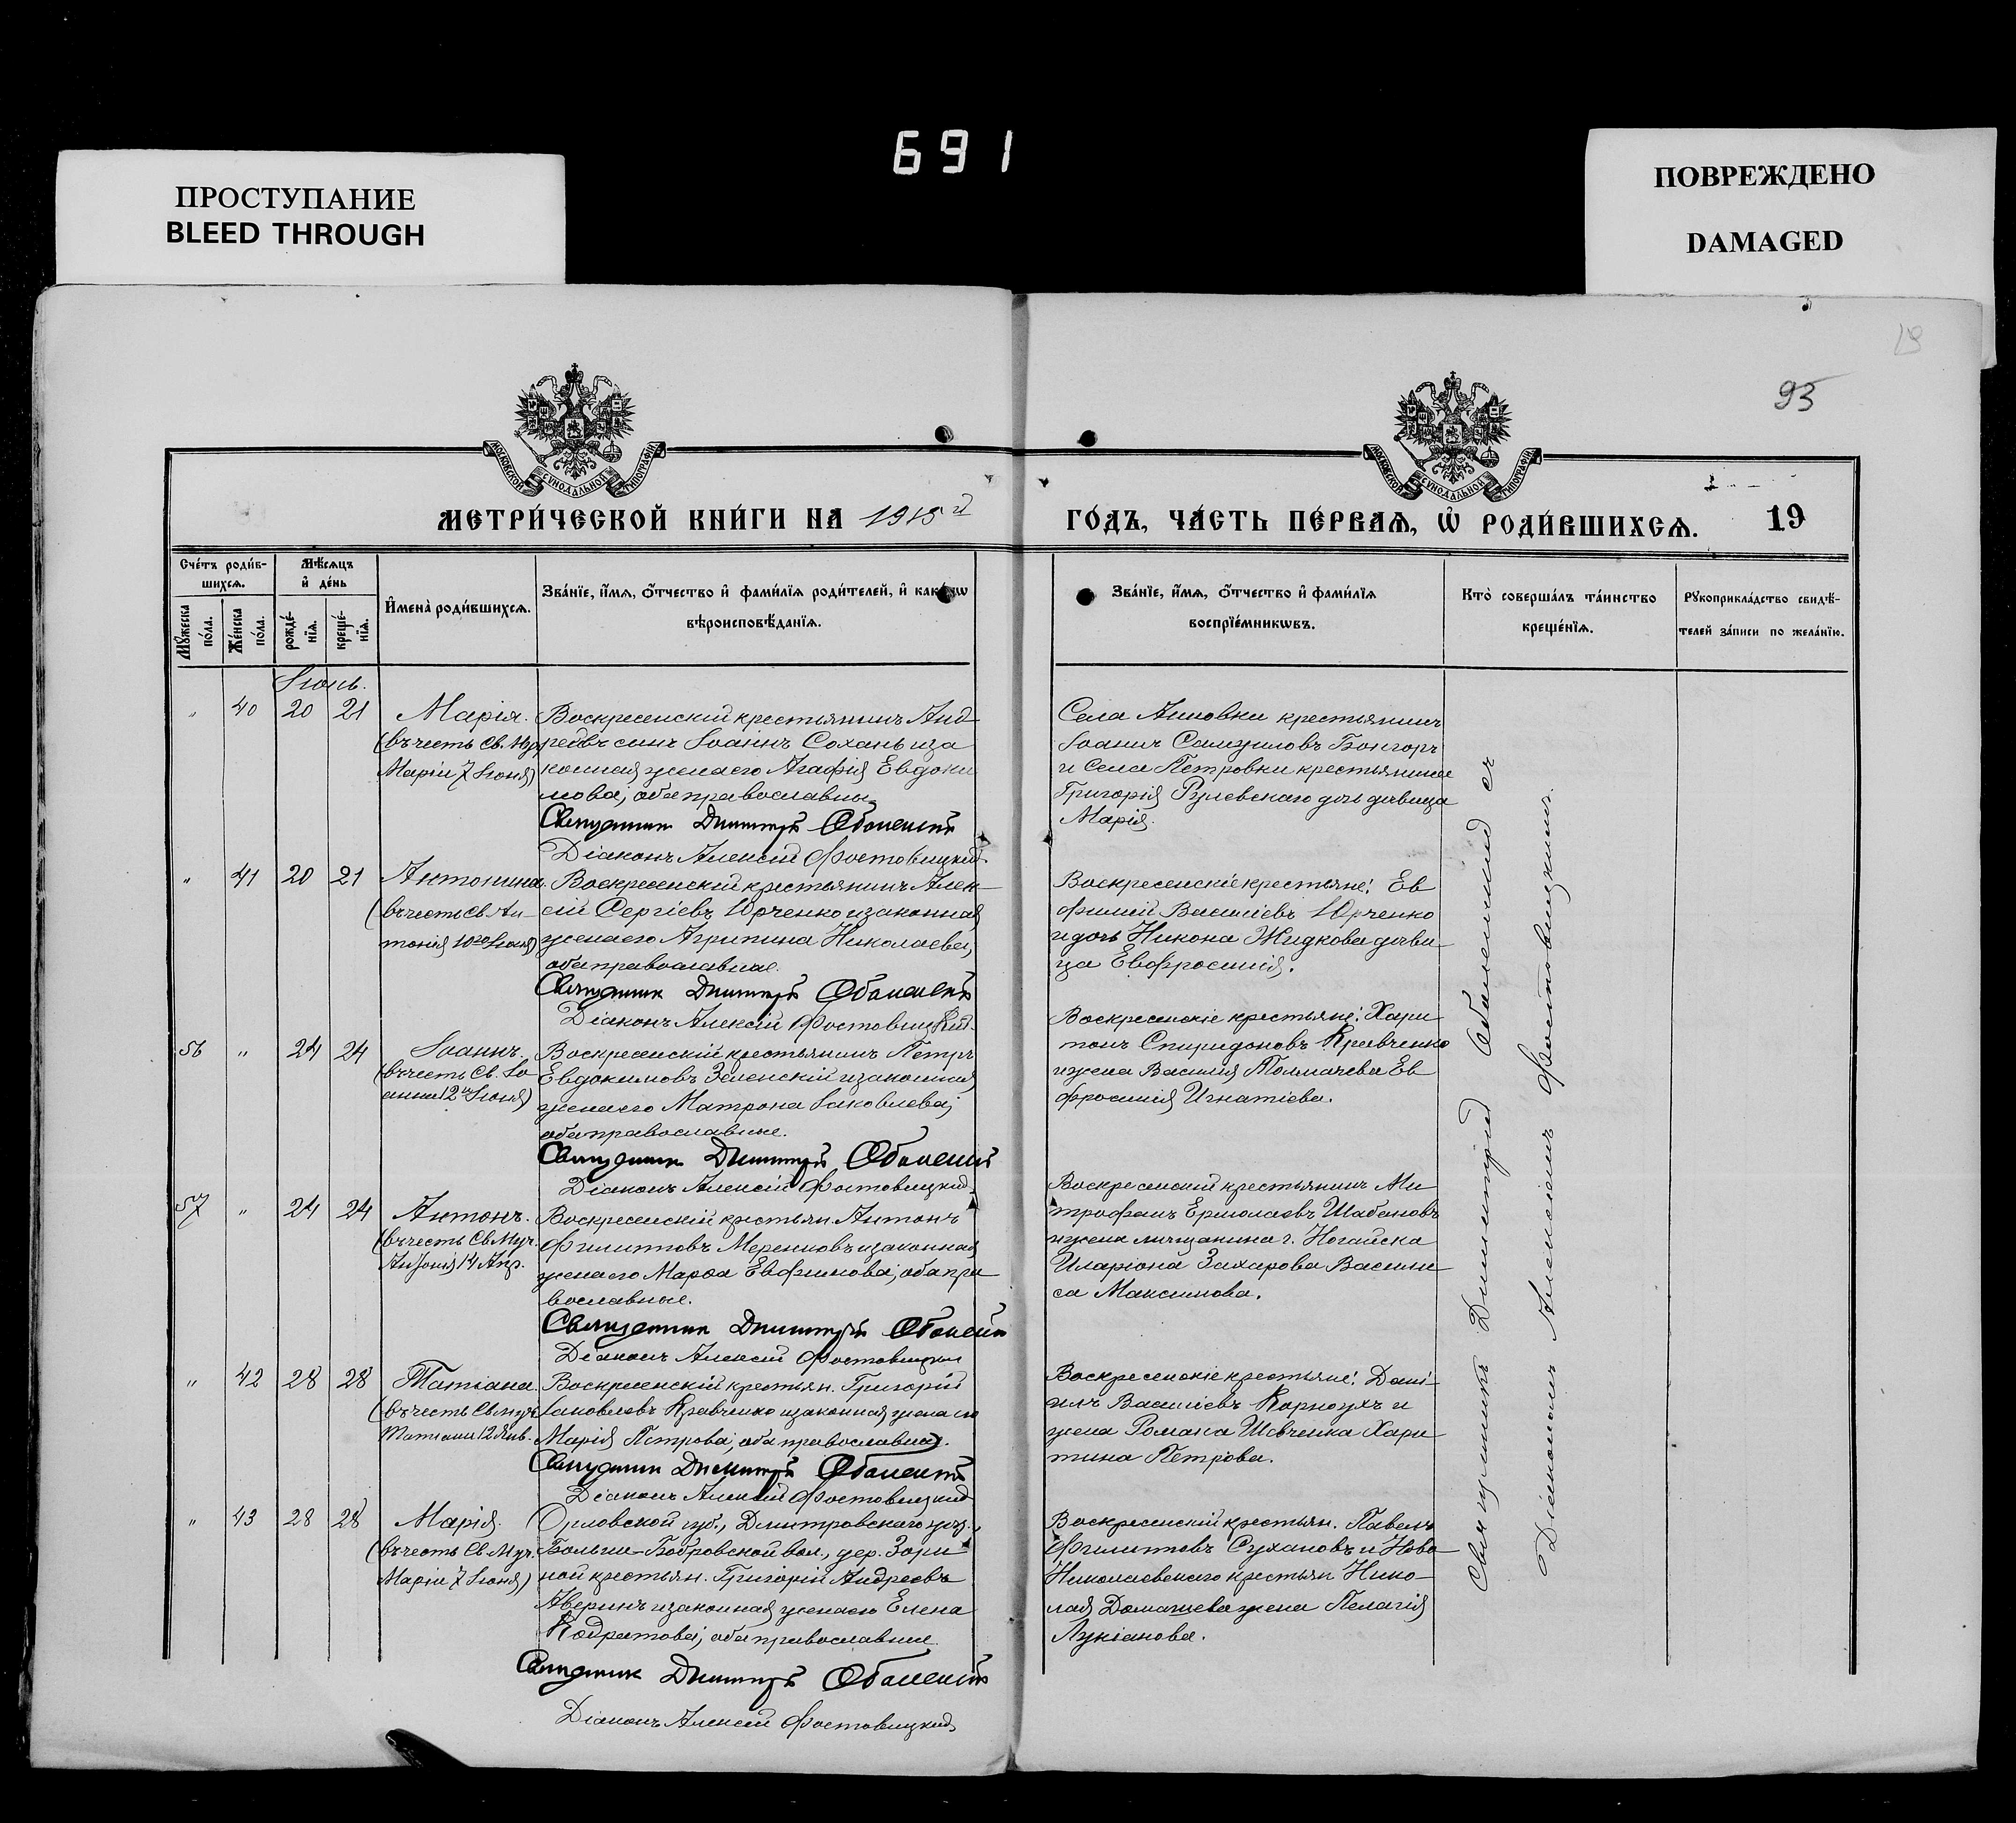 691
ПРОСТУПАНИЕ
BLEED THROUGH
ПОВРЕЖДЕНО
DAMAGED
19
95
МОСКОВСКОЙ СѴНОДАЛЬНОЙ ТИПОГРАФІИ
МОСКОВСКОЙ СѴНОДАЛЬНОЙ ТИПОГРАФІИ
МЕТРИ́ЧЕСКОЙ КНИ́ГИ НА 1915й
ГО́ДЪ, ЧА́СТЬ ПЕ́РВАѦ, Ѡ҆ РОДИ́ВШИХСѦ. 19
Сче́тъ роди́в-
шихсѧ.
Мꙋ́жеска по́ла.
Же́нска по́ла.
Мѣ́сѧцъ
и҆ де́нь
рожде́-
нїѧ.
креще́-
нїѧ.
И҆мена̀ роди́вшихсѧ.
Зва́нїе, и҆́мѧ, о҆́тчество и҆ фами́лїѧ роди́телей, и҆ како́гѡ
вѣроисповѣ́данїѧ.
Зва́нїе, и҆́мѧ, о҆́тчество и҆ фами́лїѧ
воспрїе́мникѡвъ.
Кто̀ соверша́лъ та́инство
креще́нїѧ.
Рꙋкоприкла́дство свидѣ́-
телей за́писи по жела́нїю.
Іюнь.
" 40 20 21 Марія.
(въ честь Св. Мр
Маріи 7 Іюня)
Воскресенскій крестьянинъ Анд
реевъ сынъ Іоаннъ Сохань и за
конная жена его Агафія Евдоки
мова; оба православны
Священник Димитрій Оболенскій
Діаконъ Алексій Фостовицкій.
Села Анновки крестьянинъ
Іоаннъ Самуиловъ Бонгоръ
и Села Петровки крестьянина
Григорія Рулевскаго дочь дѣвица
Марія.
" 41 20 21 Антонина.
(въ честь Св. Ан-
тонія 10го Іюня)
Воскресенскій крестьянинъ Алек-
сій Сергіевъ Юрченко и законная
жена его Агрипина Николаева,
оба православные.
Священник Димитрій Оболенскій
Діаконъ Алексій Фостовицкій.
Воскресенскіе крестьяне: Ев
фимій Василіевъ Юрченко
и дочь Никона Жидкова дѣви-
ца Евфросинія.
56 " 24 24 Іоаннъ.
(въ честь Св. Іо
анна 12го Іюня)
Воскресенскій крестьянинъ Петръ
Евдокимовъ Зеленскій и законная
жена его Матрона Іаковлева;
оба православные.
Священник Димитрій Оболенскій
Діаконъ Алексій Фостовицкій.
Воскресенскіе крестьяне: Хари
тонъ Спиридоновъ Кравченко
и жена Василія Толмачева Ев
фросинія Игнатіева.
57 " 24 24 Антонъ.
(въ честь Св. Муч.
Антонія 14 Апр.
Воскресенскій крестьян. Антонъ
Филипповъ Меренковъ и законная
жена его Марѳа Евфимова; оба пра
вославные.
Священник Димитрій Оболенскій
Діаконъ Алексій Фостовицкій
Воскресенскій крестьянинъ Ми
трофанъ Ермолаевъ Шабановъ
и жена мѣщанина г. Ногайска
Иларіона Захарова Васили-
са Максимова.
" 42 28 28 Татіана.
(въ честь Св. муч.
Татіаны 12 Янв.
Воскресенскій крестьян. Григорій
Іаковлевъ Кравченко и законная жена его
Марія Петрова; оба православные.
Священник Димитрій Оболенскій
Діаконъ Алексій Фостовицкій
Воскресенскіе крестьяне: Дані-
илъ Василіевъ Корноухъ и
жена Романа Шевченка Хари-
тина Петрова.
" 43 28 28 Марія.
(въ честь Св. Муч.
Маріи 7 Іюня)
Орловской губ., Дмитровскаго уѣз.,
Больше-Бобровской вол., дер. Зори
ной крестьян. Григорій Андреевъ
Аверинъ и законная жена его Елена
Кодратова; оба православные.
Священник Димитрій Оболенскій
Діаконъ Алексій Фостовицкій
Воскресенскій крестьян. Павелъ
Филипповъ Сухановъ и Ново
Николаевскаго крестьян Нико-
лая Домашева жена Пелагія
Лукіанова.
Священникъ Димитрій Оболенскій съ
Діакономъ Алексіемъ Фостовицкимъ.